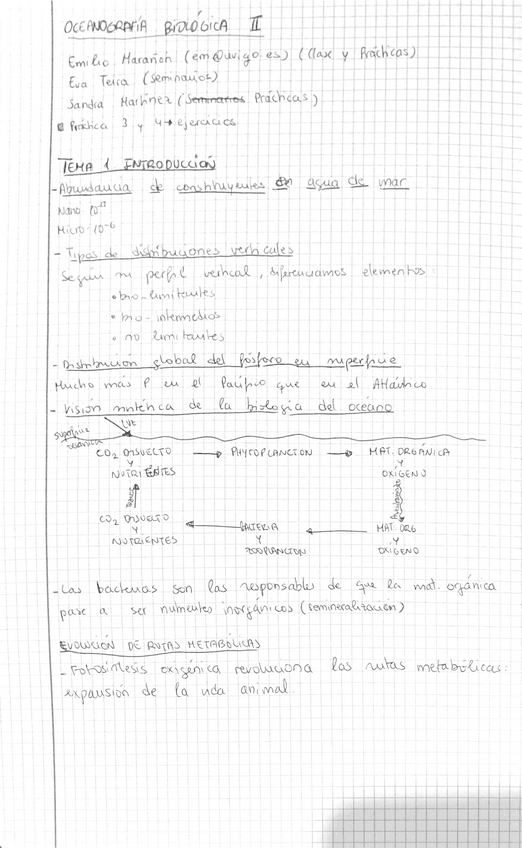 OCEANOGRAFÍA BIOLÓGICA II
Emilio Marañón (em@uvigo.es) (Clase y Prácticas)
Eva Teira (seminarios)
Sandra Martínez (Seminarios Prácticas)
Práctica 3 y 4 → ejercicios
TEMA 1 INTRODUCCIÓN
- Abundancia de constituyentes en agua de mar
Nano 10
Micro 10⁻⁶
- Tipos de distribuciones verticales
Según su perfil vertical, diferenciamos elementos:
• bio-limitantes
• bio-intermedios
• no limitantes
- Distribución global del fósforo en superficie
Mucho más P en el Pacífico que en el Atlántico
- Visión sintética de la biología del océano
superficie oceánica
LUZ
CO₂ DISUELTO → PHYTOPLANCTON → MAT. ORGÁNICA
Y Y
NUTRIENTES OXÍGENO
CO₂ DISUELTO ← BACTERIA ← MAT. ORG
Y Y Y
NUTRIENTES ZOOPLANCTON OXÍGENO
- Las bacterias son las responsables de que la mat. orgánica
pase a ser nutrientes inorgánicos (remineralización)
EVOLUCIÓN DE RUTAS METABÓLICAS
- Fotosíntesis oxigénica revoluciona las rutas metabólicas:
expansión de la vida animal